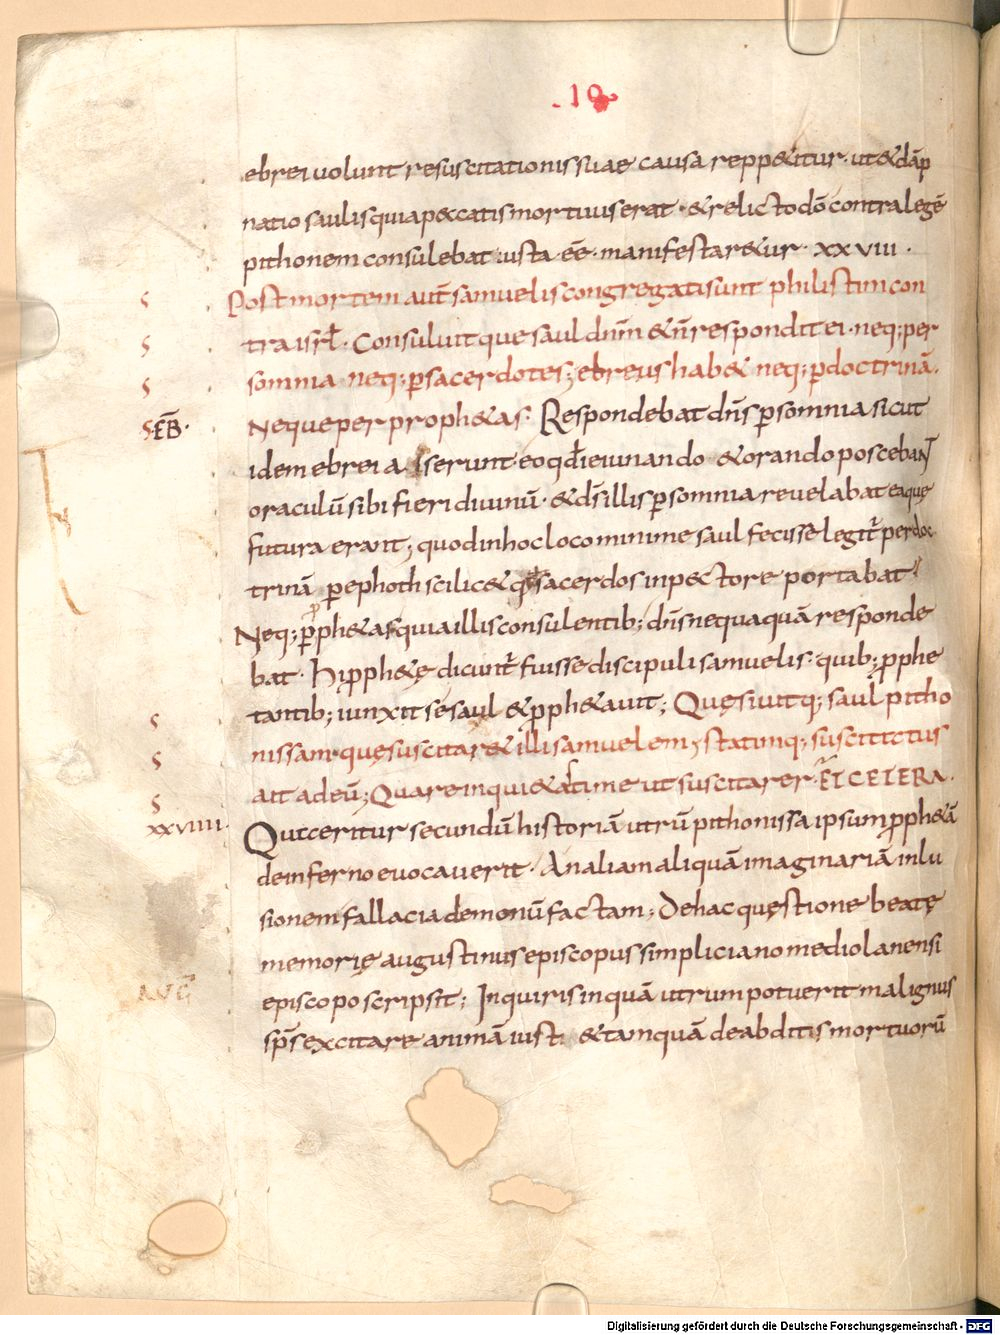 .10.
ebrei uolunt resuscitationis suae causa repp&itur· ut & dāp
natio saulis quia peccatis mortuus erat· & relicto dō contra legē
pithonem consulebat iusta eē· manifestar&ur· xxviii·
S Post mortem aut̄ samuelis congregati sunt philistim con
S tra isrl̄· Consuluitque saul dn̄m & n̄ respondit ei· neq; per
S somnia neq; ꝑ sacerdotes; ebreus hab& neq; ꝑ doctrinā·
S EB̄· Neque per proph&as· Respondebat dn̄s ꝑ somnia sicut
idem ebrei a serunt· eo qđ ieiunando & orando poscebant
oraculū sibi fieri diuinū· & dn̄s illis ꝑ somnia reuelabat ea quę
futura erant; quod in hoc loco minime saul fecisse legit̄· per doc
trinā ꝑ ephoth scilic& sacerdos in pectore portabat·
Neq; ꝑ proph&as quia illis consulentib; dn̄s nequaquā responde
bat· Hi ꝓph&ę dicunt̄ fuisse discipuli samuelis· quib; ꝓphe
tantib; iunxit se saul & ꝓph&auit; Quęsiuitq; saul pitho
S nissam· quę suscitar& illi samuelem; statimq; suscitatus
S ait ad eū; Quare inqui&asti me ut suscitarer· ET CETERA·
S
xxviiii· Queritur secundū historiā utrū pithonissa ipsum ꝓph&ā
de inferno euocauerit· An aliam aliquā imaginariā inlu
sionem fallacia demonū factam; De hac quęstione beatę
memorię augustinus episcopus simpliciano mediolanensi
AUḠ episcopo scripsit; Inquiris inquā utrum potuerit malignus
sp̄s excitare animā iusti & tamquā de abditis mortuorū
Digitalisierung gefördert durch die Deutsche Forschungsgemeinschaft - DFG